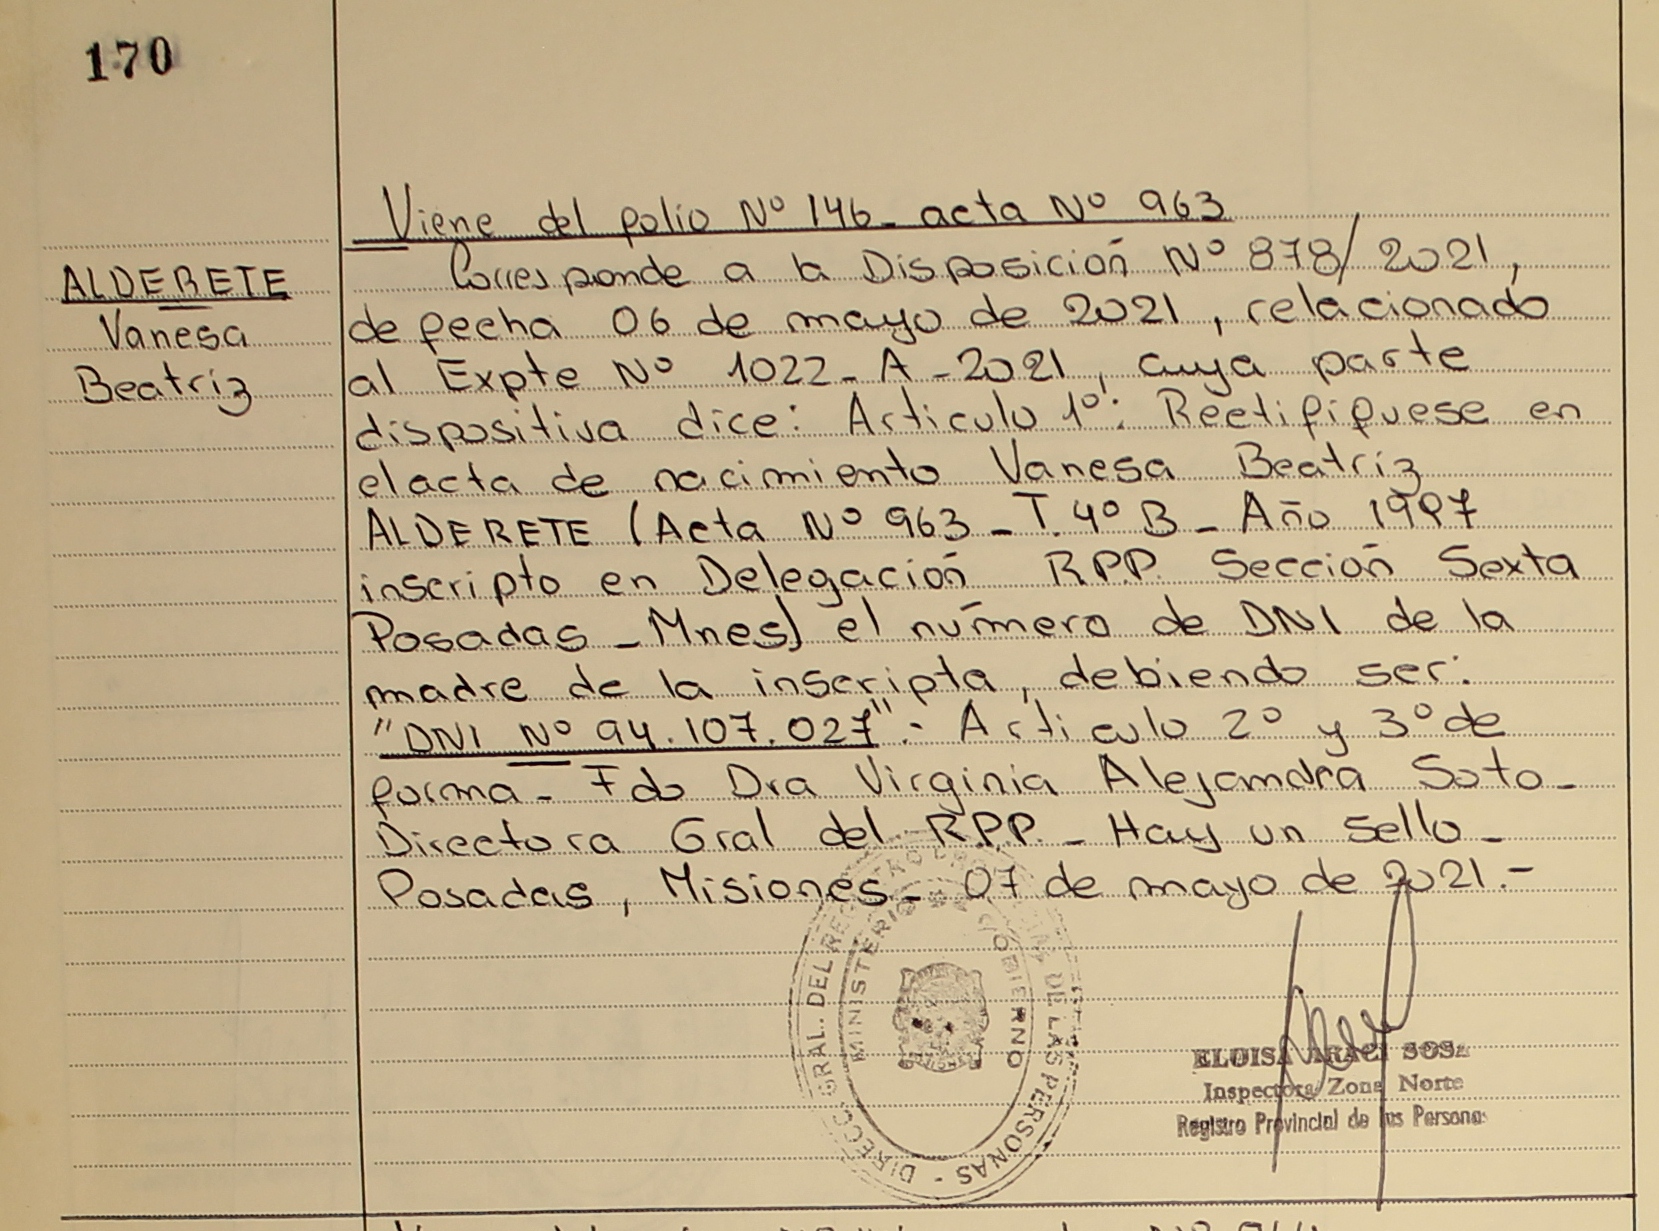 170
ALDERETE
Vanesa
Beatriz
Viene del folio Nº 146 - acta Nº 963
Corresponde a la Disposición Nº 878/2021,
de fecha 06 de mayo de 2021, relacionado
al Expte Nº 1022 - A - 2021, cuya parte
dispositiva dice: Articulo 1º: Rectifiquese en
el acta de nacimiento Vanesa Beatriz
ALDERETE (Acta Nº 963 - T. 4º B - Año 1997
inscripto en Delegación R.P.P. Sección Sexta
Posadas - Mnes) el número de DNI de la
madre de la inscripta, debiendo ser:
"DNI Nº 94.107.027".- Articulo 2º y 3º de
forma - Fdo Dra Virginia Alejandra Soto -
Directora Gral del R.P.P. - Hay un sello -
Posadas, Misiones - 07 de mayo de 2021.-
DIREC. GRAL. DEL REGISTRO DE LAS PERSONAS -
MINISTERIO DE GOBIERNO
ELOISA ARACI SOSA
Inspectora Zona Norte
Registro Provincial de las Personas